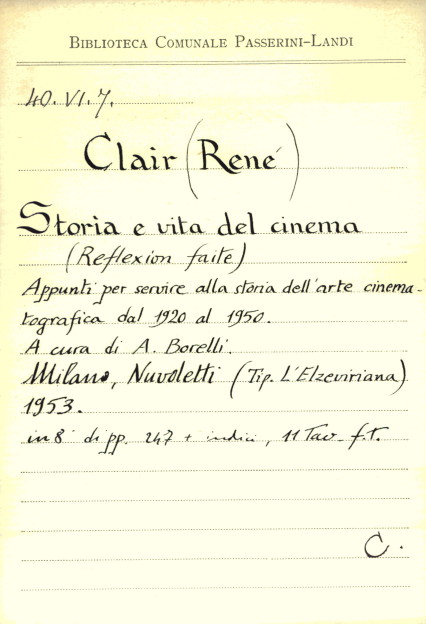 BIBLIOTECA COMUNALE PASSERINI-LANDI
40. VI. 7.
Clair (René)
Storia e vita del cinema
(Reflexion faite)
Appunti per servire alla storia dell'arte cinema-
tografica dal 1920 al 1950.
A cura di A. Borelli.
Milano, Nuvoletti (Tip. L'Elzeviriana)
1953.
in 8° di pp. 247 + indici, 11 Tav. f.t.
C.